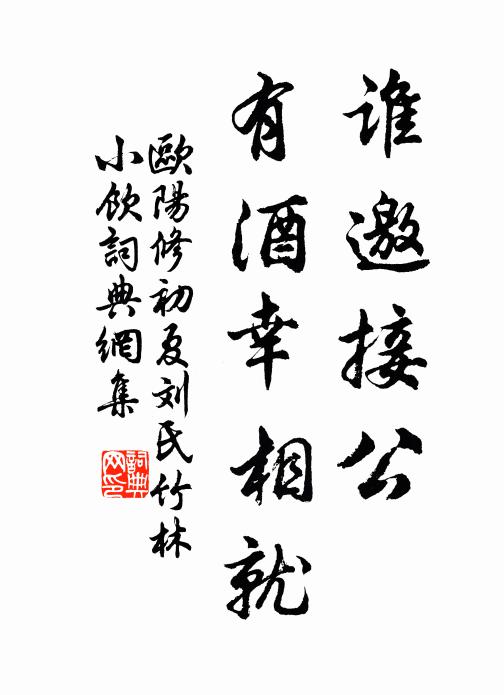 谁邀接公
有酒幸相就
歐陽修初夏刘氏竹林
小飲詞典網集
詞典
网印